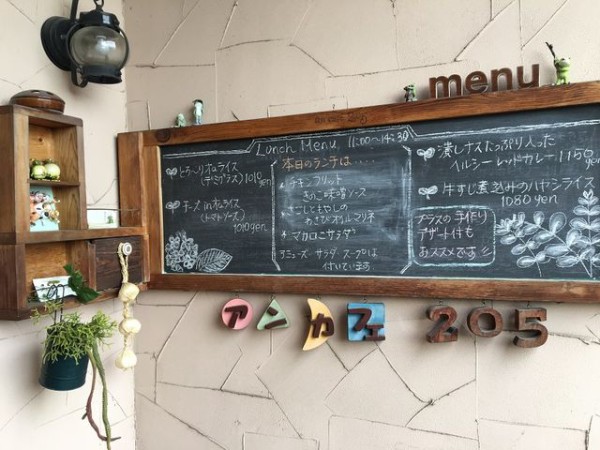 menu
Lunch Menu 11:00〜14:30
とろ〜りオムライス
(デミグラス) 1010yen
チーズinオムライス
(トマトソース)
1010yen
本日のランチは....
チキンフリット
きのこ味噌ソース
マカロニサラダ
ミニスープ サラダ
付いています
漬しナスたっぷり入った
ヘルシーレッドカレー 1150yen
牛すじ煮込みのハヤシライス
1080yen
プラスの手作り
デザート付も
おススメです!!
アンカフェ 205